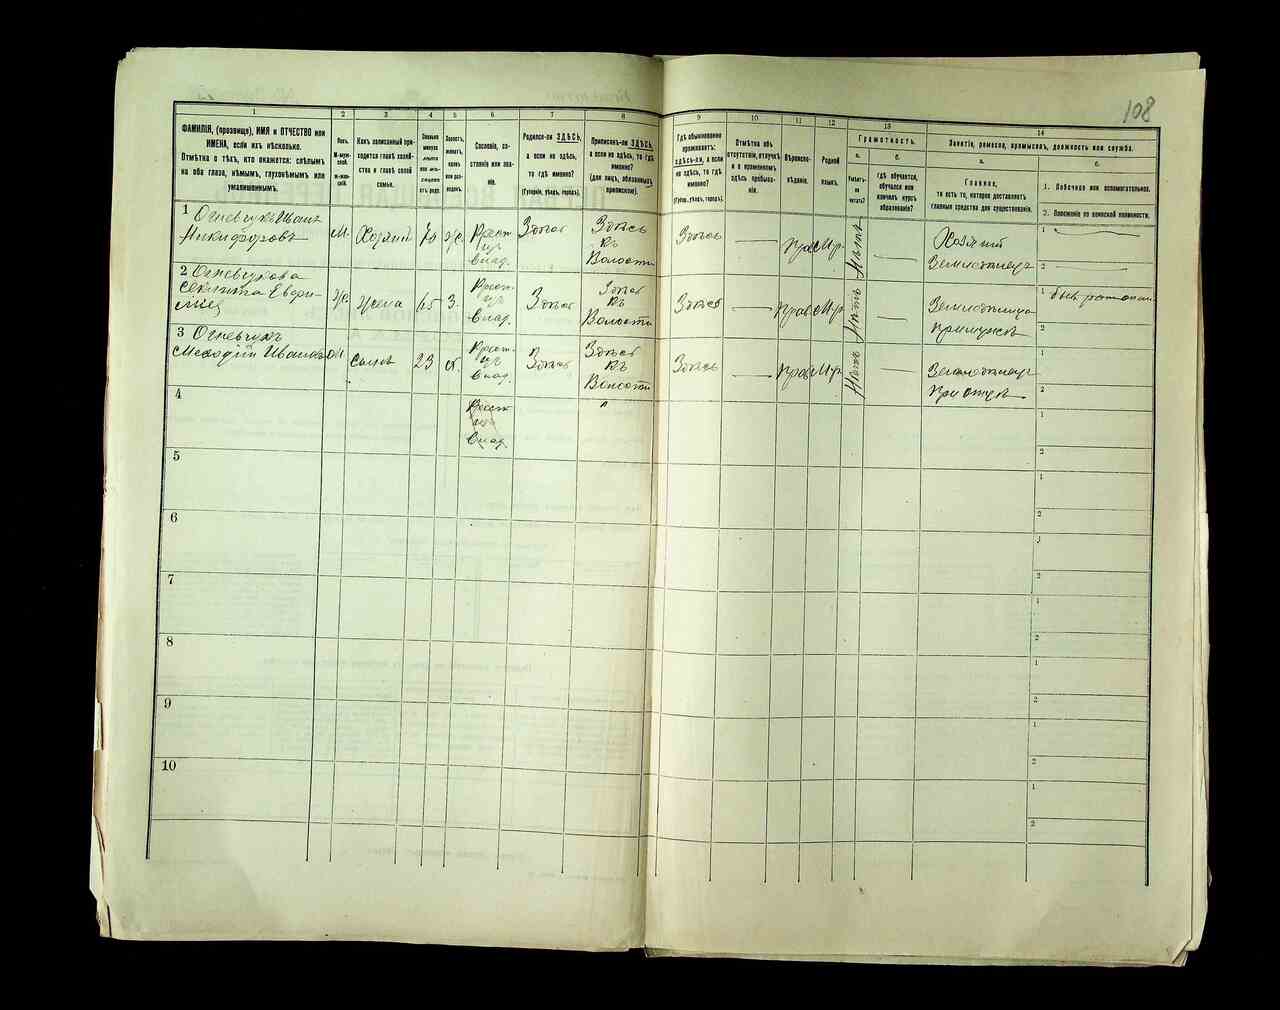 108
1
2
3
4
5
6
7
8
9
10
11
12
13
14
ФАМИЛІЯ, (прозвище), ИМЯ и ОТЧЕСТВО или
ИМЕНА, если ихъ нѣсколько.
Отмѣтка о тѣхъ, кто окажется: слѣпымъ
на оба глаза, нѣмымъ, глухонѣмымъ или
умалишеннымъ.
Полъ.
М-муж-
ской.
Ж-жен-
скій.
Какъ записанный при-
ходится главѣ хозяй-
ства и главѣ своей
семьи.
Сколько
минуло
лѣтъ
или мѣ-
сяцевъ
отъ роду.
Сословіе, со-
стояніе или зва-
ніе.
Родился-ли ЗДѢСЬ,
а если не здѣсь,
то гдѣ именно?
(Губернія, уѣздъ, городъ).
Приписанъ-ли ЗДѢСЬ,
а если не здѣсь, то гдѣ
именно?
(для лицъ, обязанныхъ
припискою).
Гдѣ обыкновенно
проживаетъ:
здѣсь-ли, а если
не здѣсь, то гдѣ
именно?
(Губерн., уѣздъ, городъ).
Отмѣтка объ
отсутствіи, отлучкѣ
и о временномъ
здѣсь пребыва-
ніи.
Вѣроиспо-
вѣданіе.
Родной
языкъ.
Грамотность.
а.
Умѣетъ-ли
читать?
б.
гдѣ обучается,
обучался или
кончилъ курсъ
образованія?
Занятіе, ремесло, промыселъ, должность или служба.
а.
Главное,
то есть то, которое доставляетъ
главныя средства для существованія.
б.
1. Побочное или вспомогательное.
2. Положеніе по воинской повинности.
1 Огневчукъ Иванъ
Никифоровъ
М.
Хозяинъ
Ж.
Крест.
изъ
Влад.
Здѣсь
Здѣсь
къ
Волости
Здѣсь
—
Прав.
М.р.
Нѣтъ
—
Хозяинъ
Земледѣлецъ
1
2
2 Огневчукова
Ж.
Жена
65
З.
Крест.
изъ
Влад.
Здѣсь
Здѣсь
къ
Волости
Здѣсь
—
Прав.
М.р.
Нѣтъ
—
Земледѣлица
при мужѣ
1
2
3 Огневчукъ
Меѳодій Ивановъ
М.
Сынъ
23
Крест.
изъ
Влад.
Здѣсь
Здѣсь
къ
Волости
Здѣсь
—
Прав.
М.р.
Нѣтъ
—
Земледѣлецъ
При отцѣ
1
2
4
Крест.
изъ
Влад.
1
2
5
1
2
6
1
2
7
1
2
8
1
2
9
1
2
10
1
2